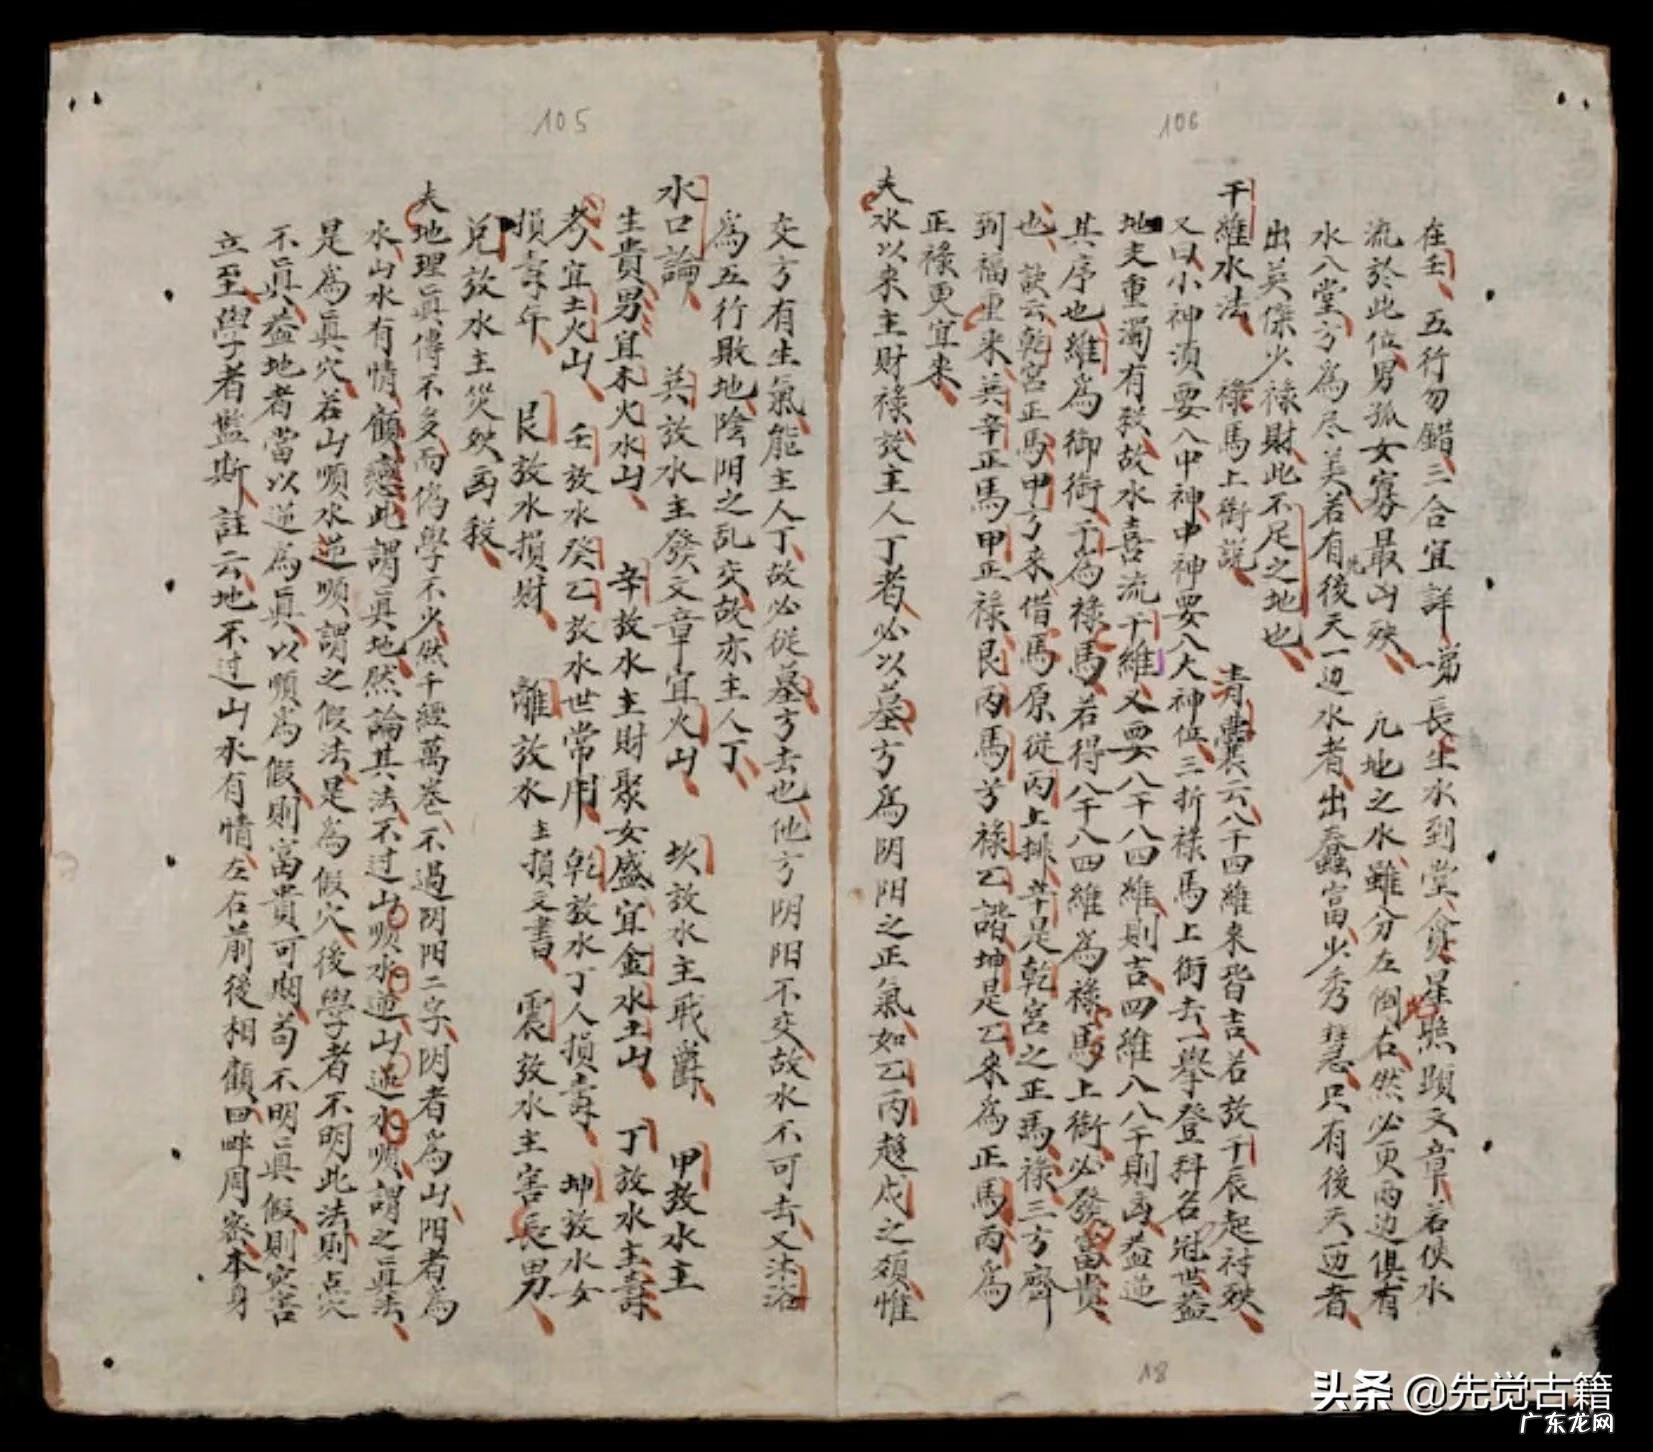 106
在壬、五行勿錯三合宜詳、一弟長生水到堂、貪星照顕文章、若使水
流於此位男孤女寡最凶殃、凢地之水、雖分左倒右、然必更兩边俱有
水八堂方為尽美若有後天一边水者、出蠢富、火秀慧、只有後天迊者、
出英傑火祿財、此不足之地也
干維水法、祿馬上街説、青囊云八干四維来皆吉、若放干辰起衬殃、
又曰小神湏要八中神、中神要入大神位、三折祿馬上街去、一舉登科名冠世、盖
地支重濁有殺、故水喜流干維、又要八干四維、則吉四維八八干則凶盖逆
其序也、維為御街、干為祿馬、若得八干八四維為祿馬上街、必發富貴
也、訣云乾宮正馬甲方来、借馬原從丙上排、辛是乾宮之正馬、祿三方齊
到福重来、英辛正馬甲正祿、艮丙馬兮祿乙諧、坤是乙来為正馬、丙為
正祿更宜来
夫水以来主財祿、放主人丁者、必以墓方為阴阳之正氣、如乙丙趍戍之類、惟
105
交方有生氣能主人丁、故必從墓方去也、他方阴阳不交故水不可去、又沐浴
為五行敗地、陰阳之乱交、故亦主人丁、
水口論、英放水主發文章宜火山、坎放水主戝爵、甲放水主
生貴男宜木火水山、辛放水主財聚女盛宜金水土山、丁放水主壽
考、宜土火山、壬放水癸乙放水世常用、乾放水丁人損壽、坤放水女
損壽年、艮放水損財、離放水主損文書、震放水主害長男、
兌放水主災殃凶殺、
夫地理眞傳不多而偽學不少、然千經萬卷、不過阴阳二字、阴者為山、阳者為
水、山水有情、顧戀此謂眞地、然論其法、不过山順水逆、山逆水順、謂之眞法、
是為眞穴、若山順水逆順、謂之假法、是為假穴、後學者不明此法、則点穴
不眞、益地者當以逆為眞、以順為假、則富貴可期、苟不明眞假、則灾害
立至、學者監斯、註云、地不过山水有情、左右前後相顧、四畔周密、本身
18
头条 @先觉古籍
广东龙网